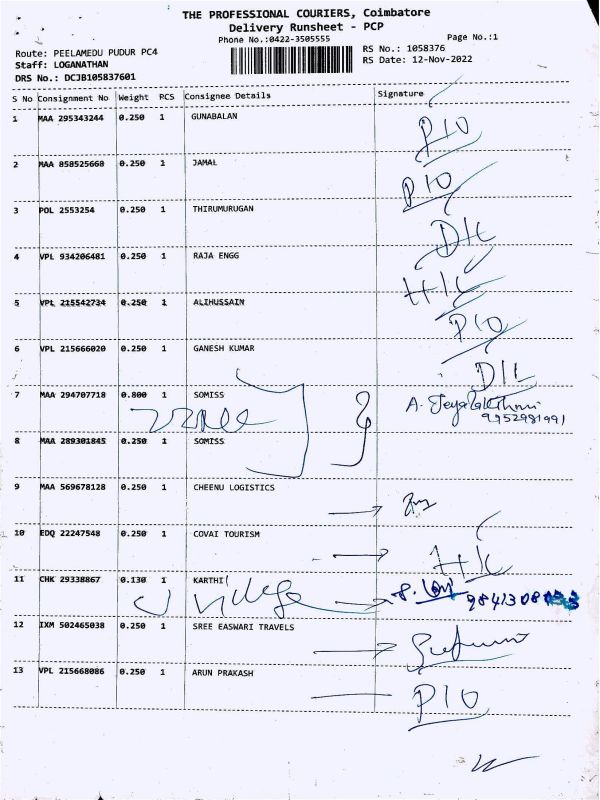 THE PROFESSIONAL COURIERS, Coimbatore
Delivery Runsheet - PCP
Phone No.:0422-3505555
Page No.:1
Route: PEELAMEDU PUDUR PC4
RS No.: 1058376
Staff: LOGANATHAN
RS Date: 12-Nov-2022
DRS No.: DCJB105837601
S No Consignment No Weight PCS Consignee Details Signature
1 MAA 295343244 0.250 1 GUNABALAN
P10
2 MAA 858525660 0.250 1 JAMAL
P10
3 POL 2553254 0.250 1 THIRUMURUGAN
D/L
4 VPL 934206481 0.250 1 RAJA ENGG
H/K
5 VPL 215542734 0.250 1 ALIHUSSAIN
P10
6 VPL 215666020 0.250 1 GANESH KUMAR
D/L
7 MAA 294707718 0.800 1 SOMISS
A. Jeyalakshmi
9952981991
8 MAA 289301845 0.250 1 SOMISS
9 MAA 569678128 0.250 1 CHEENU LOGISTICS
10 EDQ 22247548 0.250 1 COVAI TOURISM
H/K
11 CHK 29338867 0.130 1 KARTHI
12 IXM 502465038 0.250 1 SREE EASWARI TRAVELS
13 VPL 215668086 0.250 1 ARUN PRAKASH
P10